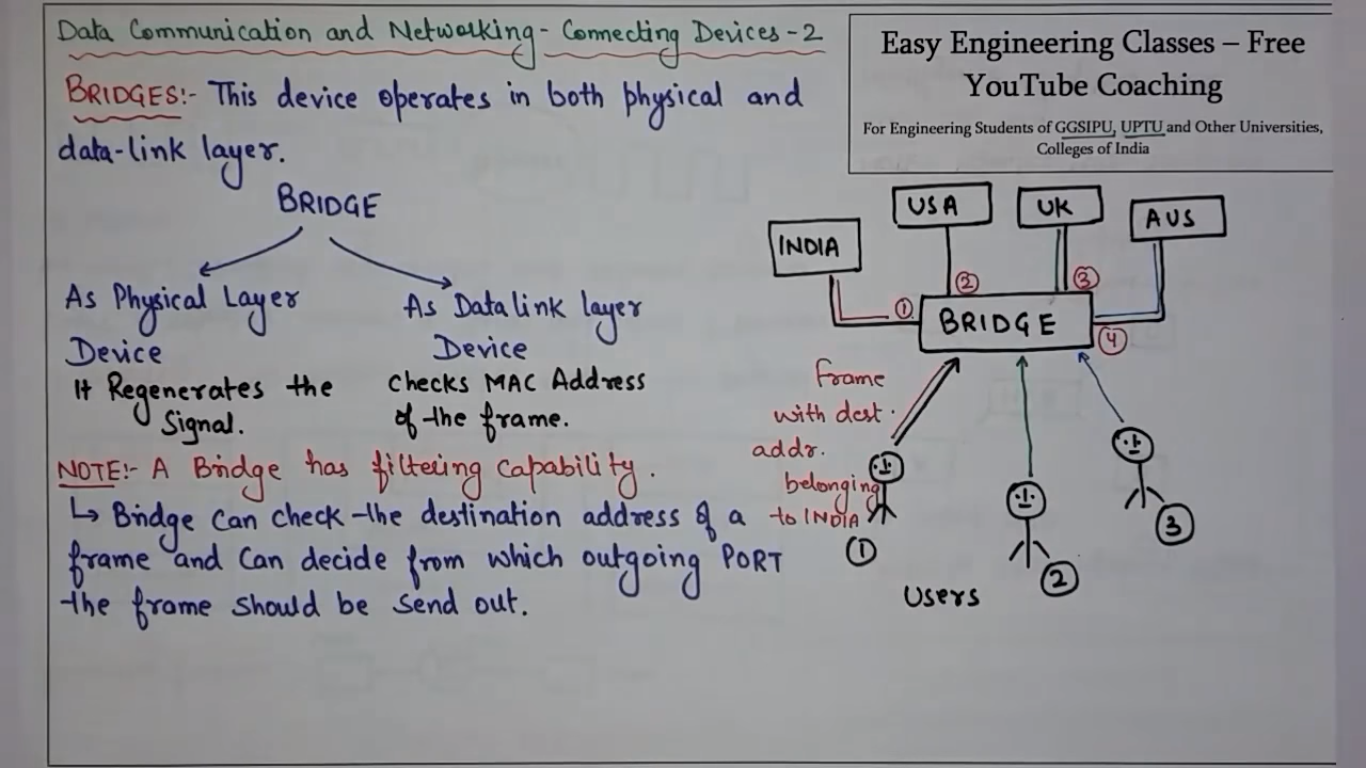 Data Communication and Networking - Connecting Devices - 2
Easy Engineering Classes – Free
YouTube Coaching
For Engineering Students of GGSIPU, UPTU and Other Universities,
Colleges of India
BRIDGES:- This device operates in both physical and
data-link layer.
BRIDGE
As Physical Layer
Device
It Regenerates the
Signal.
As Datalink layer
Device
Checks MAC Address
of the frame.
NOTE:- A Bridge has filtering capability.
↳ Bridge can check the destination address of a
frame and can decide from which outgoing PORT
the frame should be send out.
INDIA
USA
UK
AUS
①
②
③
④
BRIDGE
frame
with dest.
addr.
belonging
to INDIA
①
②
③
Users